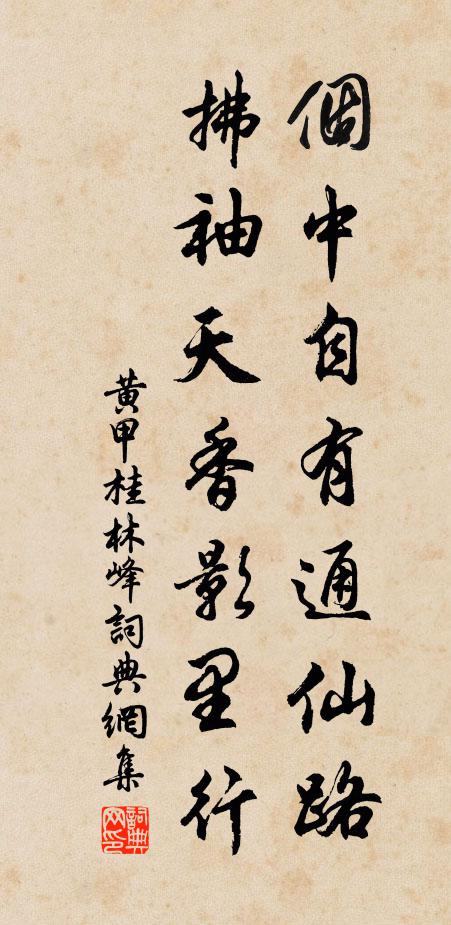 個中自有通仙路
拂袖天香影里行
黄甲桂林峰詞典網集
詞典網印